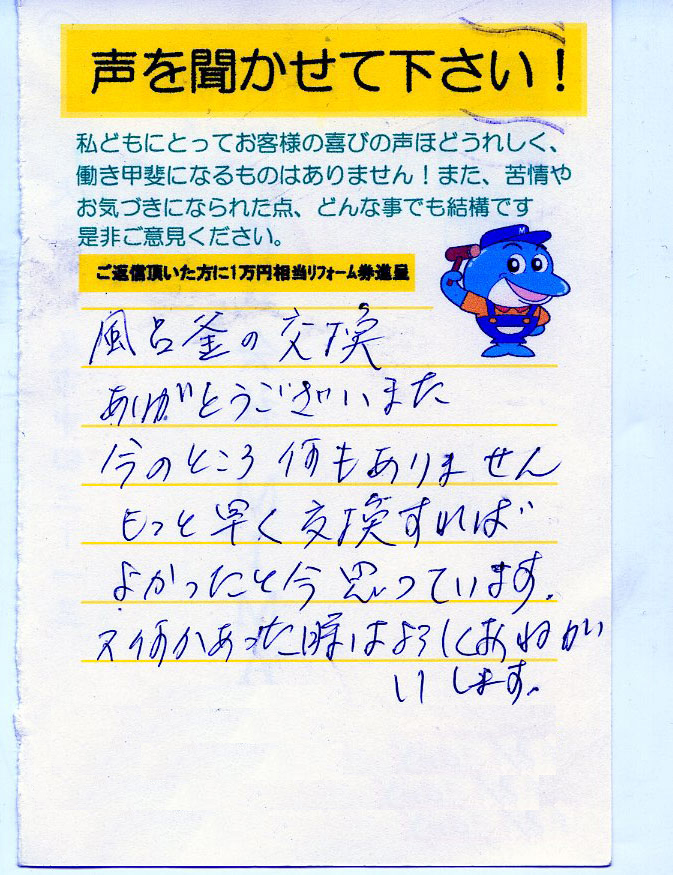 声を聞かせて下さい！
私どもにとってお客様の喜びの声ほどうれしく、
働き甲斐になるものはありません！また、苦情や
お気づきになられた点、どんな事でも結構です
是非ご意見ください。
ご返信頂いた方に1万円相当リフォーム券進呈
M
風呂釜の交換
ありがとうございまた
今のところ何もありません
もっと早く交換すれば
よかったと今思っています。
又何かあった時はよろしくおねがい
いします。